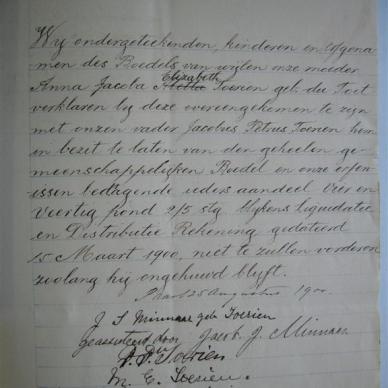 Wij ondergeteekenden, kinderen en erfgena-
men des Boedels van wijlen onze moeder
Elizabeth
Anna Jacoba Toerien geb. du Toit
verklaren bij deze overeengekomen te zijn
met onzen vader Jacobus Petrus Toerien hem
in bezit te laten van den geheelen ge-
meenschappelijken Boedel en onze erfen-
issen bedragende ieders aandeel Vier en
Veertig pond 2/5 stg. blijkens Liquidatie
en Distributie Rekening gedateerd
15 Maart 1900, niet te zullen vorderen
zoolang hij ongehuwd blijft.
25 Augustus 1900.
J S Minnaar geb Toerien
Geassisteerd door Jacob. J. Minnaar
Toerien
M. E. Toerien.